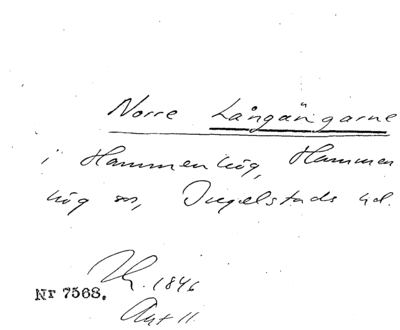 Norre Långängarne
i Hammenhög, Hammen
hög sn, Ingelstads hd.
1846
Nr 7568.
Akt 11